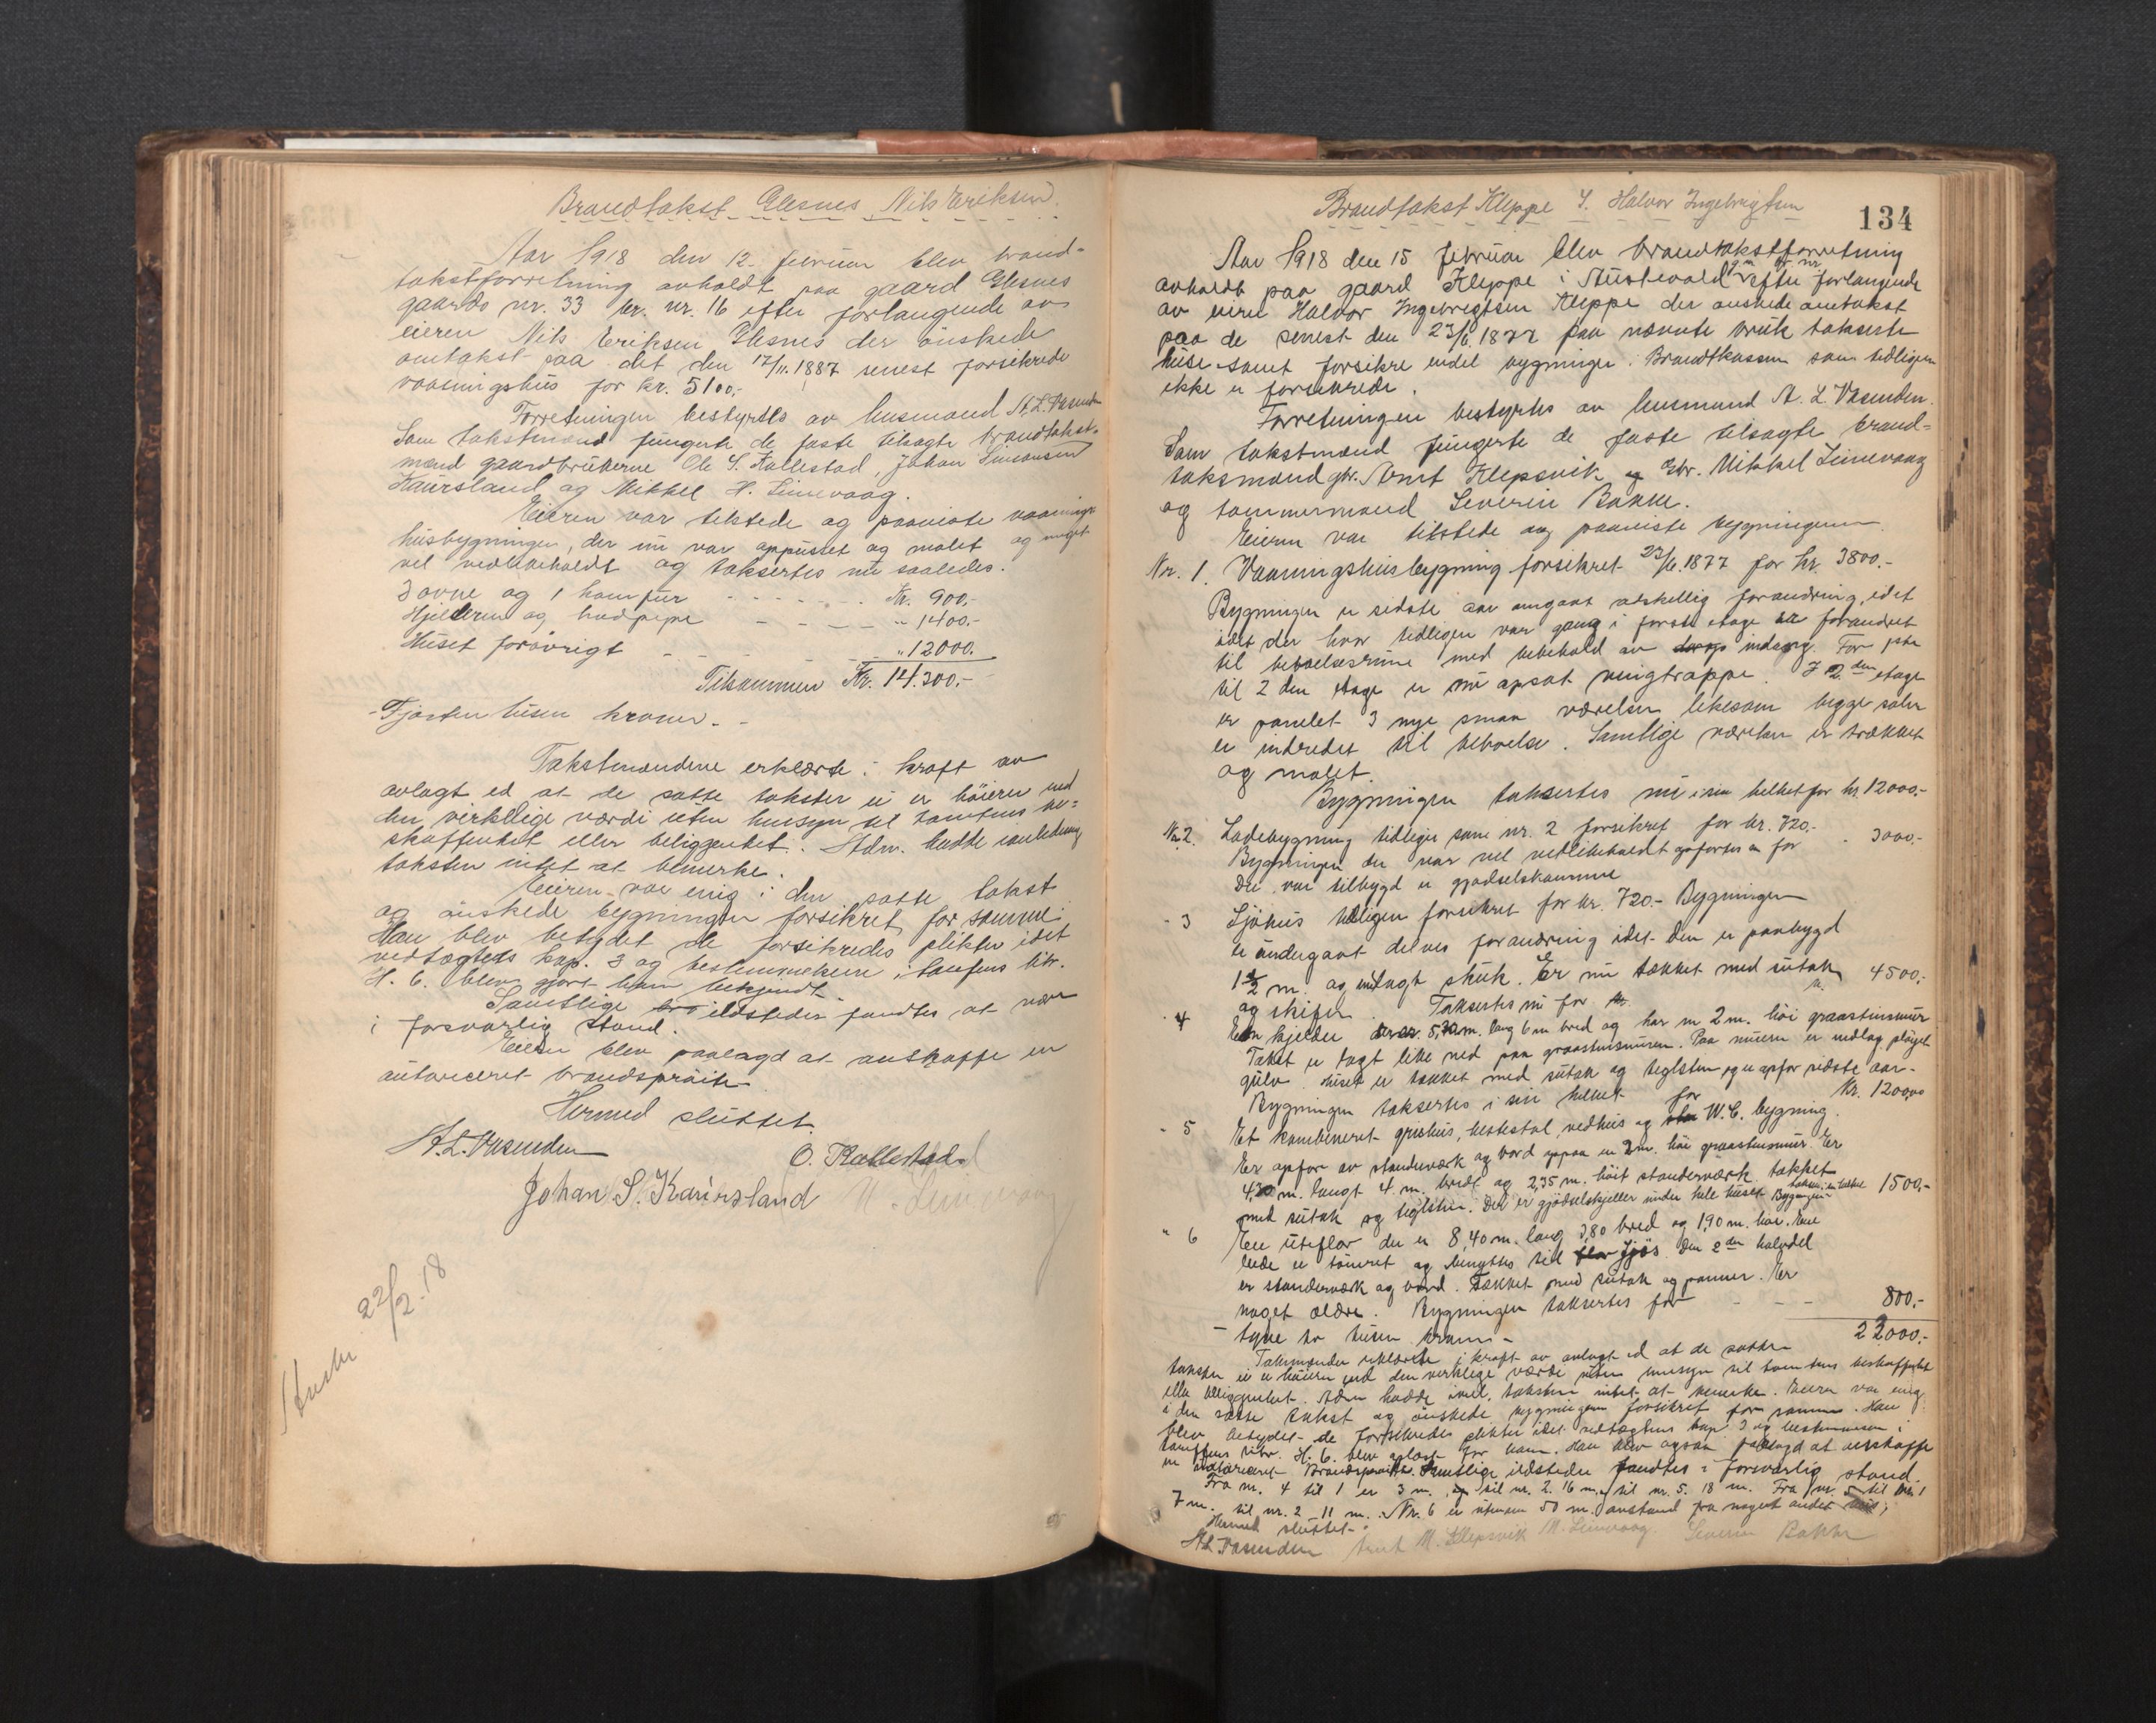 Brandtakst Glesnes Nils Eriksen.
Aar 1918 den 12. februar blev brand-
takstforretning avholdt paa gaard Glesnes
gaards nr. 33 br. nr. 16 efter forlangende av
eieren Nils Eriksen Glesnes der ønskede
omtakst paa det den 17/11.1887 senest forsikrede
vaaningshus for kr. 5100,-
Forretningen bestyrtes av lensmand A. L. Vasenden
Som takstmænd fungerte de faste tilsagte brandtakst-
mænd gaardbrukerne Ole S. Kallestad, Johan Simonsen
Kaursland og Mikkel H. Limevaag.
Eieren var tilstede og paaviste vaanings-
husbygningen, der nu var oppusset og malet og meget
vel vedlikeholdt og taksertes nu saaledes.
3 ovne og 1 komfur - - - - - - Kr. 900,-
Hjelderen og hudpipe - - - - " 1400.-
Huset forøvrigt - - - - - " 12000.
Tilsammen Kr. 14.300,-
- Fjorten tusen kroner. -
Takstmændene erklærte i kraft av
avlagt ed at de satte takster ei er høiere end
den virkelige værdi uten hensyn til tomtens be-
skaffenhet eller beliggenhet. Adm. hadde i anledning
taksten intet at bemerke.
Eieren var enig i den satte takst
og ønskede bygningen forsikret for samme.
Han blev betydet de forsikredes plikter idet
vedtægtens kap. 3 og bestemmelserne i tariffens litr.
H. 6. blev gjort ham bekjendt.
Samtlige ildsteder fandtes at være
i forsvarlig stand.
Eieren blev paalagd at anskaffe en
autoriceret brandsprøite.
Hermed sluttet.
A. L. Vasenden O. Kallestad
Johan S. Kaursland M. Limevaag
22/2.18
Brandtakst Kleppe S. Halvor Ingebrigtsen
134
Aar 1918 den 15 februar blev brandtakstforretning
avholdt paa gaard Kleppe i Austevold efter forlangende
av eieren Halvor Ingebrigtsen Kleppe der ønskede omtakst
paa de senest den 23/6 1877 paa nævnte bruk takserte
huse samt forsikre endel bygninger i Brandkassen som tidligere
ikke er forsikrede.
Forretningen bestyrtes av lensmand A. L. Vasenden.
Som takstmænd fungerte de faste tilsagte brand-
taksmænd gbr. Arnt Klepsvik og Gbr. Mikkel Limevaag
og tømmermand Severin Bakke.
Eieren var tilstede og paaviste bygningerne.
Nr. 1. Vaaningshusbygning forsikret 23/6.1877 for kr. 3800.-
Bygningen er sidste aar omgaat adskellig forandring, idet
idet der hvor tidligere var gang i første etage er forandret
til beboelsesrum med bebehold av indgang. For 1ste
til 2 den etage er nu opsat vingtrappe. I 2. den etage
er panelet 3 nye smaa værelser likesom begge saler
er indredet til beboelse. Samtlige værelser er trækket
og malet.
Bygningen taksertes nu i sin helhet for kr. 12000.-
Nr. 2. Ladebygning tidligere som nr. 2 forsikret for kr. 720.-
Bygningen der var vel vedlikeholdt opførtes for - 3000.-
Der var tilbygd en gjødselskammer
" 3 Sjøhus tidligere forsikret for kr. 720.- Bygningen
er undergaat delvis forandring idet den er paabygd
1 1/2 m. og indlagt skuk. Er nu tækket med sutak
og skifer. Taksertes nu for kr. 4500,-
" 4 En hjelder 5,30 m. lang 6 m bred og har en 2 m. høi graastensmur
Taket er lagt like ned paa graastensmuren. Paa muren er indlag pløiet
gulv. Huset er tækket med sutak og teglsten og er opfør sidste aar.
Bygningen taksertes i sin helhet for Kr. 1200,00
" 5 Et kombineret grishus, hestestal, vedhus og W. C. bygning.
Er opføre av standerværk og bord oppaa en 2 m. høi graastensmur. Er
4,30 m. langt 4 m. bredt og 2,35 m. høit standerværk tækket
med sutak og teglsten. Der er gjødselskjeller under hele huset Bygningen takser. i sin helhet 1500,-
" 6 En uteflor der er 8,40 m. lang 3,80 bred og 1,90 m. høi. Ene
ende er tømret og benyttes til fjøs. Den 2 den halvdel
er standerværk og bord. Tækket med sutak og panner. Er
noget ældre. Bygningen taksertes for - - - 800,-
- tyve to tusen kroner - 23000.-
Takstmænder erklærte i kraft av avlagt ed at de satte
takster ei er høiere end den virkelige værdi uten hensyn til tomtens beskaffenhet
eller beliggenhet. Adm hadde i anl. taksten intet at bemerke. Eieren var enig
i den satte takst og ønskede bygningerne forsikret for samme. Han
blev betydet de forsikredes plikter idet vedtægtens kap. 3 og bestemmelsen i
tariffens litr. H. 6. blev oplæst for ham. Han blev ogsaa paalagd at anskaffe
en autoriceret Brandsprøite. Samtlige ildsteder fandtes i forsvarlig stand.
Fra nr. 4 til 1 er 3 m., til nr. 2. 16 m., til nr. 5. 18 m. Fra nr. 5 til nr. 1
7 m. til nr. 2 11 m. Nr. 6 er utenom 50 m. avstand fra noget andet hus;
Hermed sluttet.
A L Vasenden Arnt M. Klepsvik M. Limevaag Severin Bakke